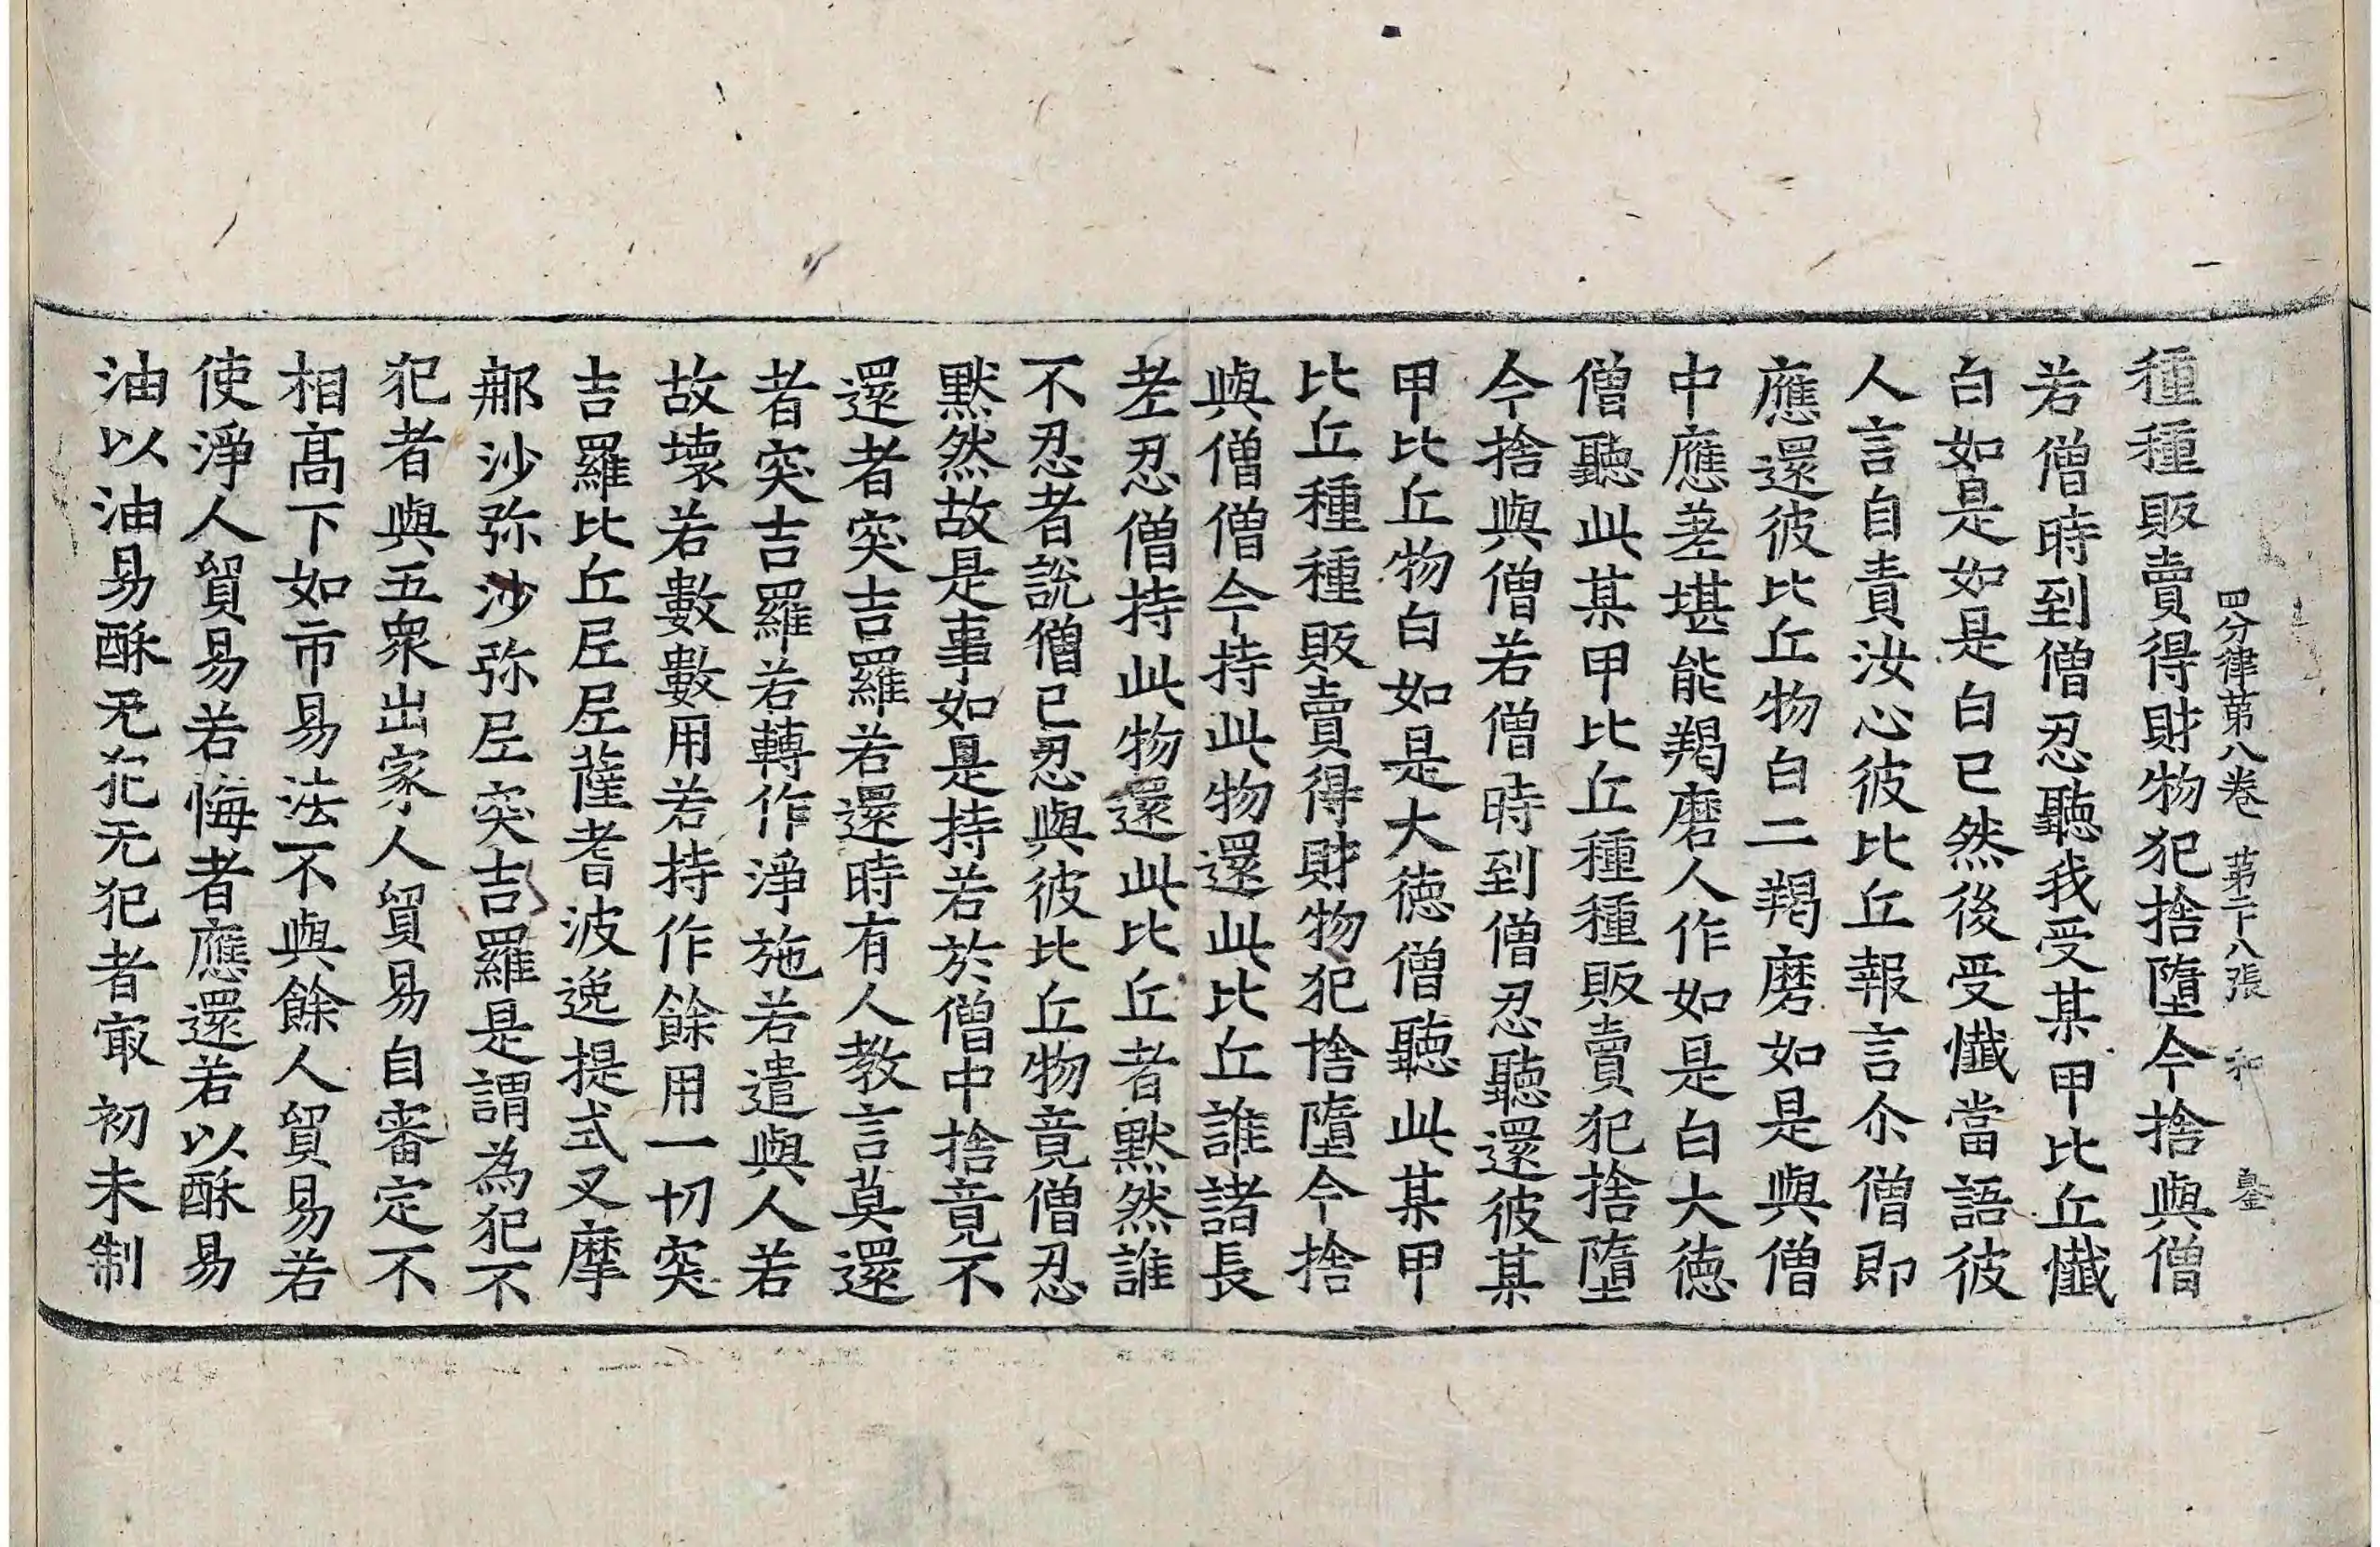 四分律第八卷 第二十八張 和
種種販賣得財物犯捨墮今捨與僧
若僧時到僧忍聽我受某甲比丘懺
白如是如是白已然後受懺當語彼
人言自責汝心彼比丘報言尒僧即
應還彼比丘物白二羯磨如是與僧
中應差堪能羯磨人作如是白大德
僧聽此某甲比丘種種販賣犯捨墮
今捨與僧若僧時到僧忍聽還彼某
甲比丘物白如是大德僧聽此某甲
比丘種種販賣得財物犯捨墮今捨
與僧僧今持此物還此比丘誰諸長
老忍僧持此物還此比丘者默然誰
不忍者說僧已忍與彼比丘物竟僧忍
默然故是事如是持若於僧中捨竟不
還者突吉羅若還時有人教言莫還
者突吉羅若轉作淨施若遣與人若
故壞若數數用若持作餘用一切突
吉羅比丘尼尼薩耆波逸提式叉摩
那沙弥沙弥尼突吉羅是謂為犯不
犯者與五眾出家人貿易自審定不
相高下如市易法不與餘人貿易若
使淨人貿易若悔者應還若以酥易
油以油易酥无犯无犯者㝡初未制